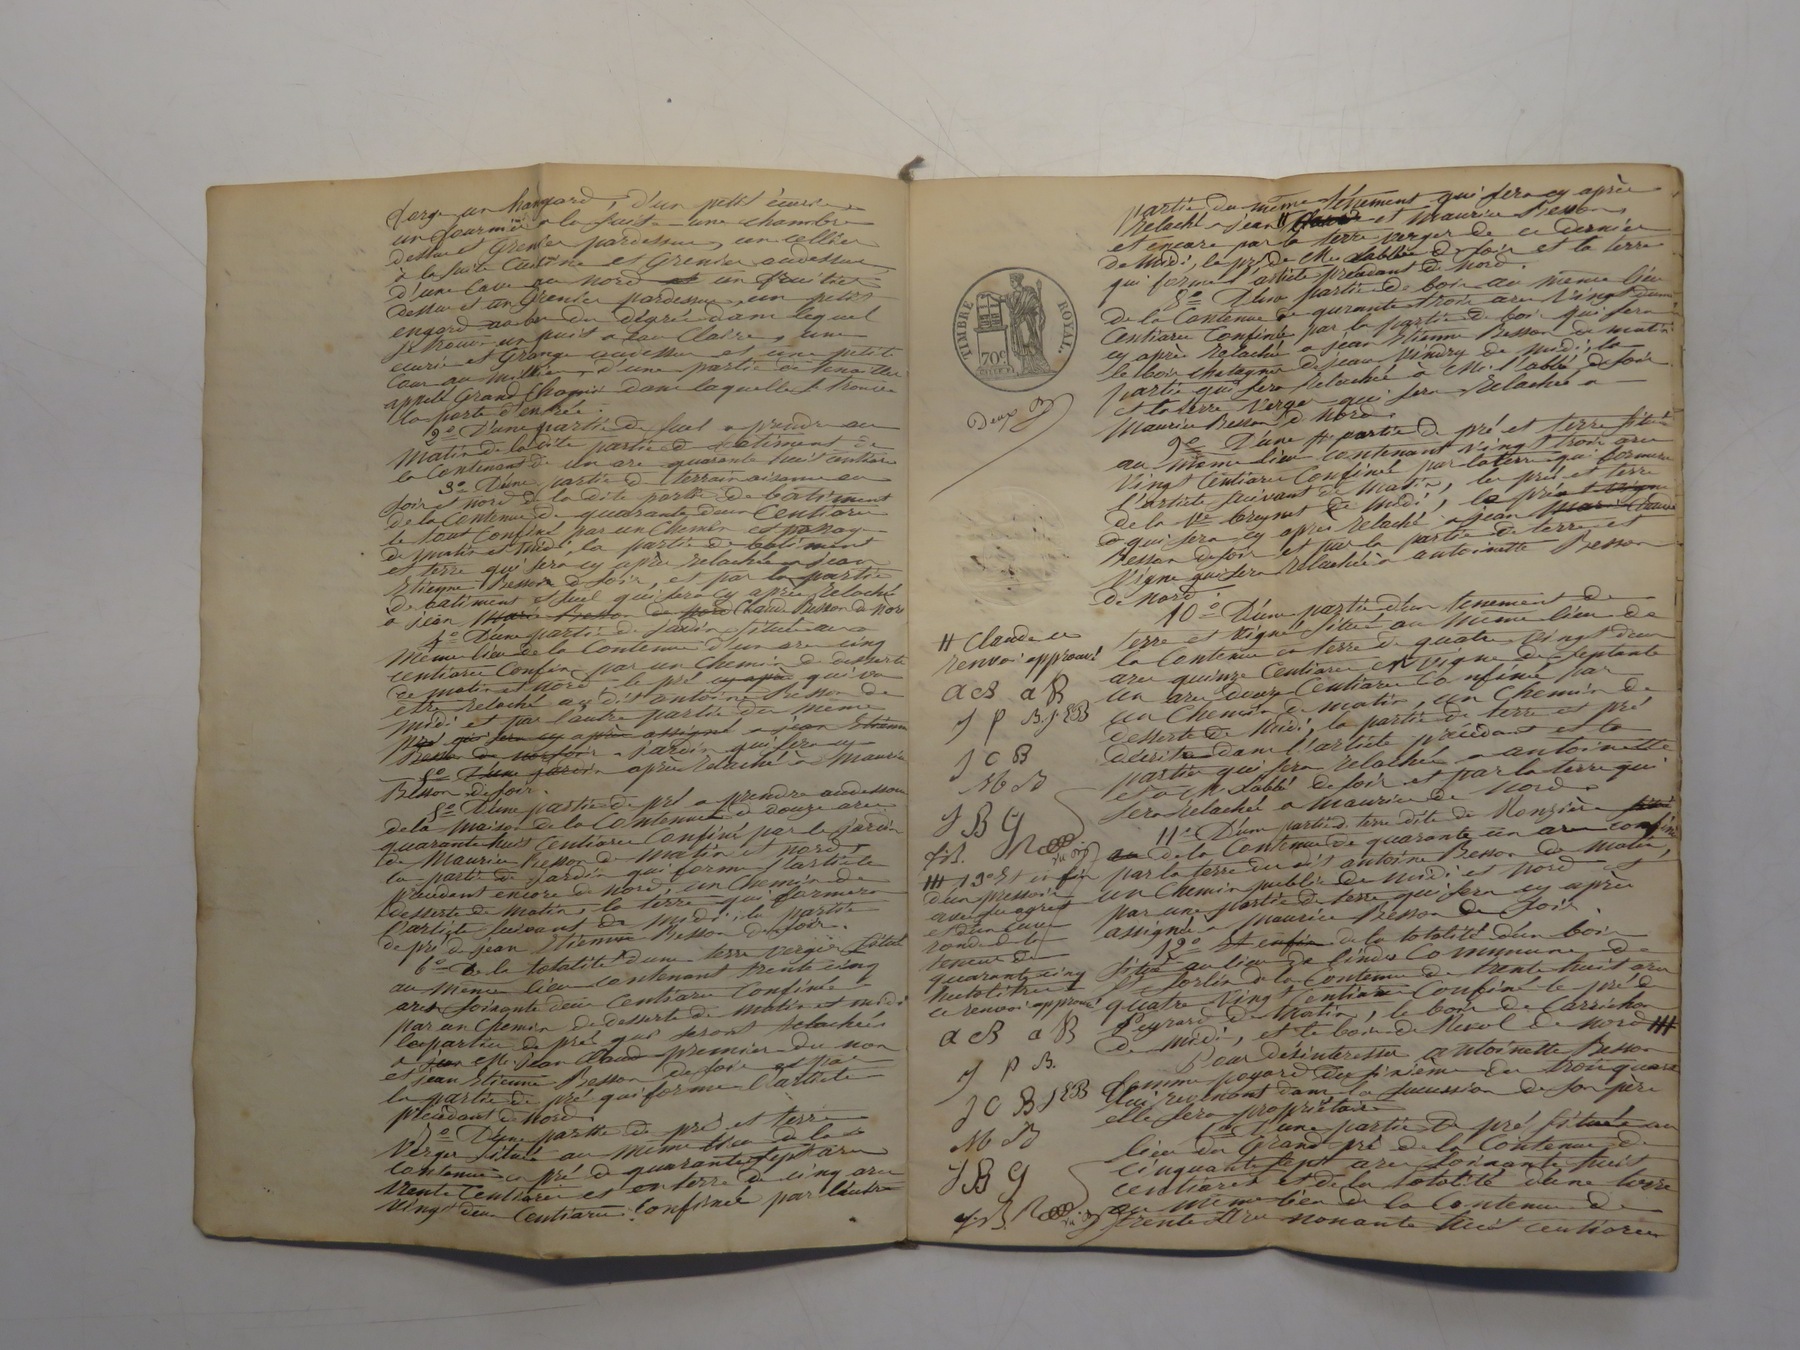 forge un hangard, d'un petit écurie
un fournier a la suite une chambre
dessus et Grenier pardessus, un cellier
à la suite Cuisine et Grenier audessus
d'une Cave au nord et un fruitier
dessus et un Grenier pardessus, un petit
engard au bas du dégrés dans lequel
se trouve un puit a Eau Claire, une
écurie et Grange audessus et une petite
Cour au millieu, d'une partie de
appellé Grand dans laquelle se trouve
la porte d'entrée.
2o D'une partie de suel a prendre au
Matin de la dite partie de Batiment de
la Contenant de un are quarante huit centiare
3o D'une partie de terrain aisance au
soir et nord de la dite partie de batiment
de la Contenue de quarante deux Centiares
le tout Confiné par un Chemin et
de matin et midi, la partie de batiment
et terre qui sera cy après relachée a jean
Etienne Besson de soir, et par la partie
de batiment et suel qui sera cy après relaché
a jean Marie Besson de nord Claude Besson de nord
4o D'une partie de jardin situé au
même lieu de la Contenue d'un are cinq
centiares Confiné par un Chemin de desserte
de matin et nord le pré cy après qui va
etre relaché au dit antoine Besson de
midi et par l'autre partie du meme
pré qui sera cy après assigné a jean Etienne
Besson de soir jardin qui sera cy
5o D'une jardin après relaché a Maurice
Besson de soir.
5o D'une partie de pré a prendre audessous
de la maison de la Contenue de douze ares
quarante huit Centiares Confiné par le jardin
de Maurice Besson de Matin et nord,
la partie de jardin qui forme l'article
précédant encore de nord, un Chemin de
desserte de matin, la terre qui formera
l'article suivant de midi, la partie
de pré de jean Etienne Besson de soir.
6o De la totalité d'une terre verger situé
au meme lieu contenant trente cinq
ares soixante deux Centiares Confiné
par un Chemin de desserte de Matin et midi
la partie de pré qui seront relachées
a jean Claude premier du nom
et jean Etienne Besson de soir et par
la partie de pré qui forme l'article
précédant de nord.
7o D'une partie de pré et terre
Verger situé au même lieu de la
contenue en pré de quarante sept ares
trente Centiares et en terre de cinq ares
vingt deux Centiares. Confinée par l'autre
partie du même ténement qui sera cy après
relaché a jean H et Maurice Besson,
et encore par la terre verger de ce dernier
de Midi, le pré de Mr. Labbé de soir et la terre
qui forme l'article précédant de Nord.
8o D'une partie de bois au meme lieu
de la Contenue de quarante trois ares vingt deux
Centiares Confinée par la partie de bois qui sera
cy après relaché a jean Etienne Besson de matin
le bois chatagner de jean Vindry de midi, la
partie qui sera relachée à Mr. Labbé de soir
et la terre Verger qui sera relachée a
Maurice Besson de Nord.
9o D'une partie de pré et terre situé
au même lieu contenant vingt trois ares
vingt Centiares Confiné par la terre qui formera
l'article suivant de Matin, les pré et terre
de la Ve de midi, le pré et vigne
qui sera cy après relaché a jean Claude
Besson de soir et par la partie de terre et
Vigne qui sera relachée a antoinette Besson
de Nord.
10o D'une partie d'un tenement de
terre et Vigne situé au même lieu de
la Contenue en terre de quatre vingt deux
ares quinze Centiares en vigne de septante
un ares douze Centiares Confiné par
un Chemin de matin, un Chemin de
desserte de midi, la partie de terre et pré
décrite dans l'article précédant et la
partie qui sera relachée a antoinette
et a Mr. Labbé de soir et par la terre qui
sera relaché a Maurice de Nord.
11o D'une partie de terre dite de situé
de la Contenue de quarante un are confiné
par la terre du dit antoine Besson de Matin,
un Chemin public de midi et nord et
par une partie de terre qui sera cy après
assigné a Maurice Besson de soir.
12o Et enfin de la totalité d'un bois
situé au lieu de Commune de
St Sorlin de la Contenue de trente huit ares
quatre vingt Centiares Confiné le pré de
Peyrard de Matin, le bois de
de midi, et le bois de de nord HH
Pour désinteresser antoinette Besson
femme poyard des sixième de trois quarts
lui revenant dans la succession de son père
elle sera propriétaire
1o D'une partie de pré située au
lieu du Grand pré de la Contenue de
cinquante sept ares soixante huit
centiares et de la totalité d'une terre
au même lieu de la Contenue de
trente ares nonante huit centiares
TIMBRE ROYAL.
70c
Deux
H Claude ce
renvoi approuvé
a c B a B
J P B. J.EB
J C B
M B
J B G
J.B.
HH 13o Et enfin
d'un pressoir
avec ses agrés
et d'un cuve
ronde de la
teneur de
quarante cinq
hectolitres
ce renvoi approuvé
a c B a B
J P B.
J C B J EB
M B
J B G
J.B.